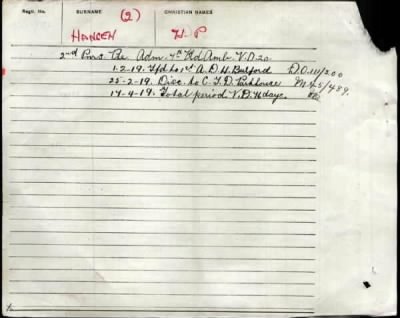 Regtl. No. SURNAME CHRISTIAN NAMES
HANCEN (2) H. P
2nd Pnrs. Pte Adm. 7th Fld Amb. V.D.20
1-2-19. Tfd to 1st A.D.H. Bulford D.O.111/200
25-2-19. Disc. to C.T.D. Parkhouse M.45/489.
17-4-19. Total period V.D. 76 days.